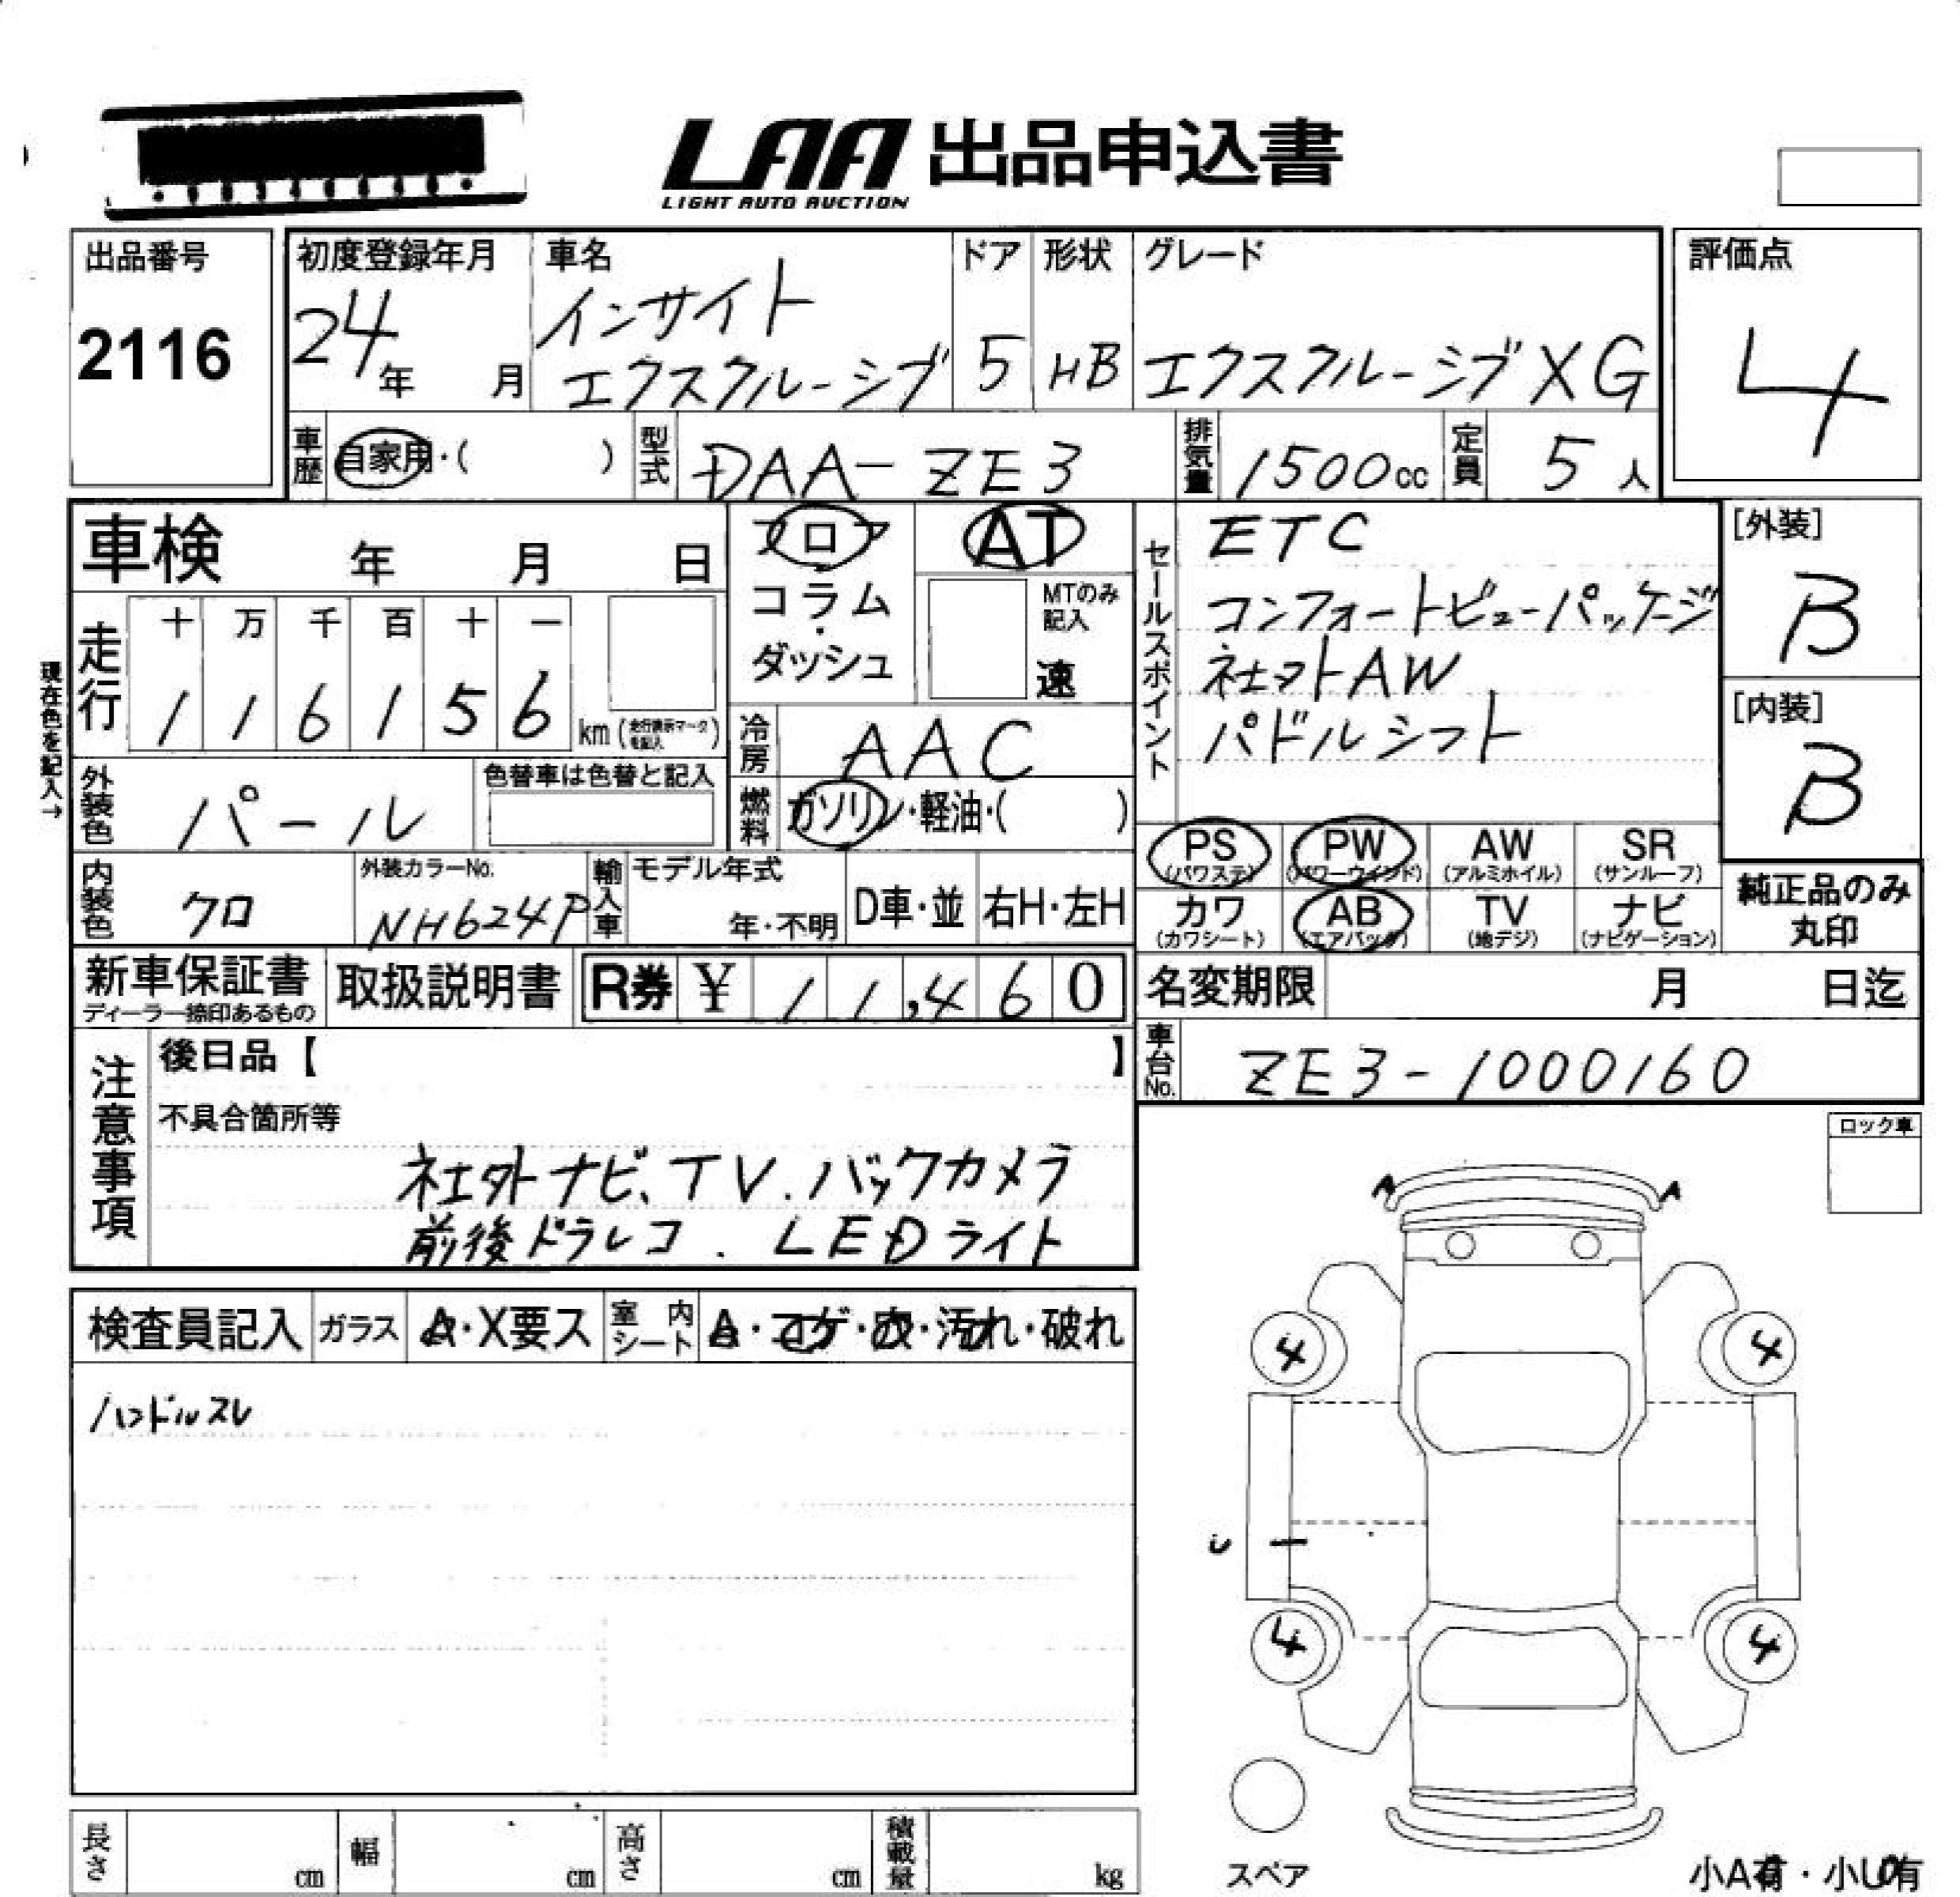 LAA 出品申込書
LIGHT AUTO AUCTION
出品番号
2116
初度登録年月
24年 月
車名
インサイト
エクスクルーシブ
ドア
5
形状
HB
グレード
エクスクルーシブ XG
評価点
4
車歴
自家用・( )
型式
DAA-ZE3
排気量
1500cc
定員
5人
車検 年 月 日
フロア
コラム
・
ダッシュ
AT
MTのみ
記入
速
セールスポイント
ETC
コンフォートビューパッケージ
社外AW
パドルシフト
[外装]
B
[内装]
B
現在色を記入→
走行
十 万 千 百 十 一
1 1 6 1 5 6
km (走行表示マークを記入)
冷房
AAC
外装色
パール
色替車は色替と記入
燃料
ガソリン・軽油・( )
PS
(パワステ)
PW
(パワーウィンド)
AW
(アルミホイル)
SR
(サンルーフ)
内装色
クロ
外装カラーNo.
NH624P
輸入車
モデル年式
年・不明
D車・並
右H・左H
カワ
(カワシート)
AB
(エアバック)
TV
(地デジ)
ナビ
(ナビゲーション)
純正品のみ
丸印
新車保証書
ディーラー捺印あるもの
取扱説明書
R券 ¥ 11,460
名変期限 月 日迄
車台No.
ZE3-1000160
注意事項
後日品【 】
不具合箇所等
社外ナビ、TV.バックカメラ
前後ドラレコ.LEDライト
ロック車
A A
検査員記入
ガラス
A・X要ス
室内シート
A・コゲ・穴・汚れ・破れ
ハンドルスレ
4 4
4 4
スペア
長さ cm
幅 cm
高さ cm
積載量 kg
小A有・小U有